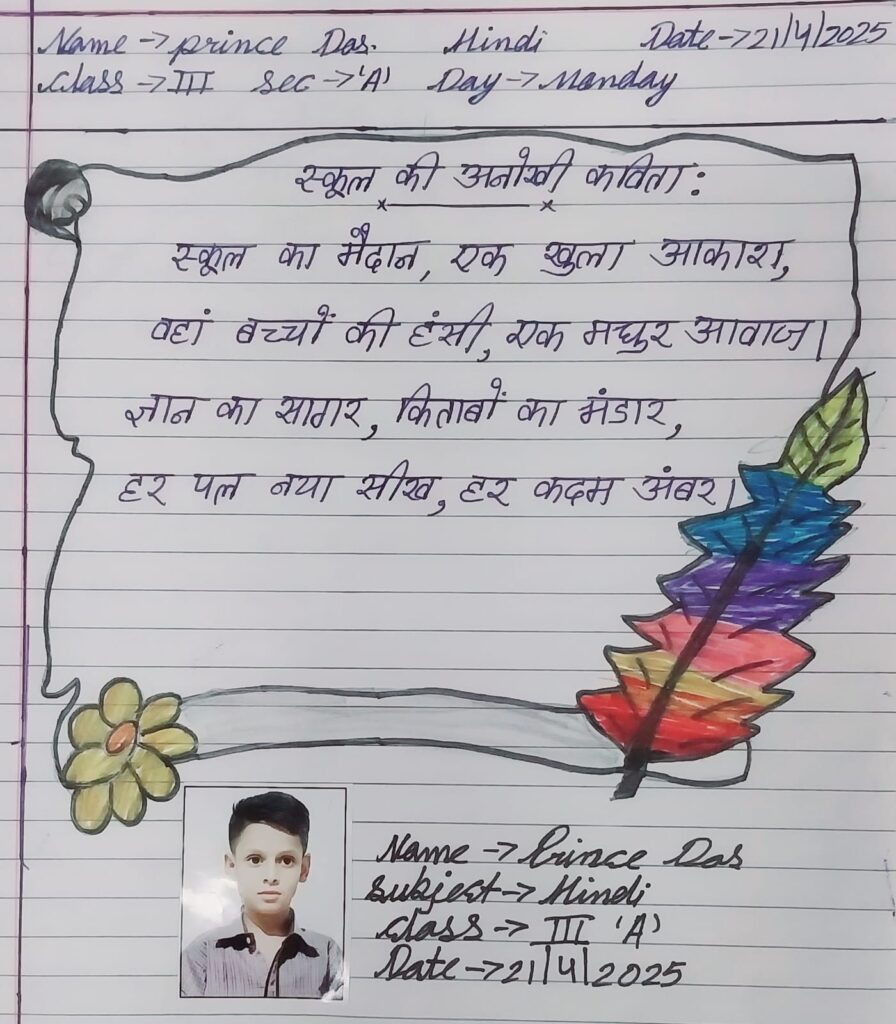 Name → Prince Das. Hindi Date → 21/4/2025
Class → III Sec → 'A' Day → Monday
स्कूल की अनोखी कविता :
स्कूल का मैदान, एक खुला आकाश,
वहां बच्चों की हंसी, एक मधुर आवाज।
ज्ञान का सागर, किताबों का भंडार,
हर पल नया सीख, हर कदम अंबर।
Name → Prince Das
Subject → Hindi
Class → III 'A'
Date → 21/4/2025